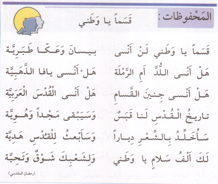 المَحْفُوظات:
قَسَماً يا وَطَني
قَسَماً يا وَطَني لَنْ أَنْسى بيسانَ وَعَكّا طَبَرِيَّة
هَلْ أَنْسى اللُّدَّ أَمِ الرَّمْلَة هَلْ أَنْسى يافا الذَّهَبِيَّة
هَلْ أَنْسى جِنينَ القَسّامِ هَلْ أَنْسى القُدْسَ العَرَبِيَّة
تاريخُ القُدْسِ لَنا قَبَسٌ وَسَيَبْقى مَجْداً وَهُوِيَّة
سَأُخَلِّدُ بِالشِّعْرِ دِياراً وَسَأَبْعَثُ لِلْقُدْسِ هَدِيَّة
لَكَ أَلْفُ سَلامٍ يا وَطَني وَلِشَعْبِكَ شَوْقٌ وَتَحِيَّة